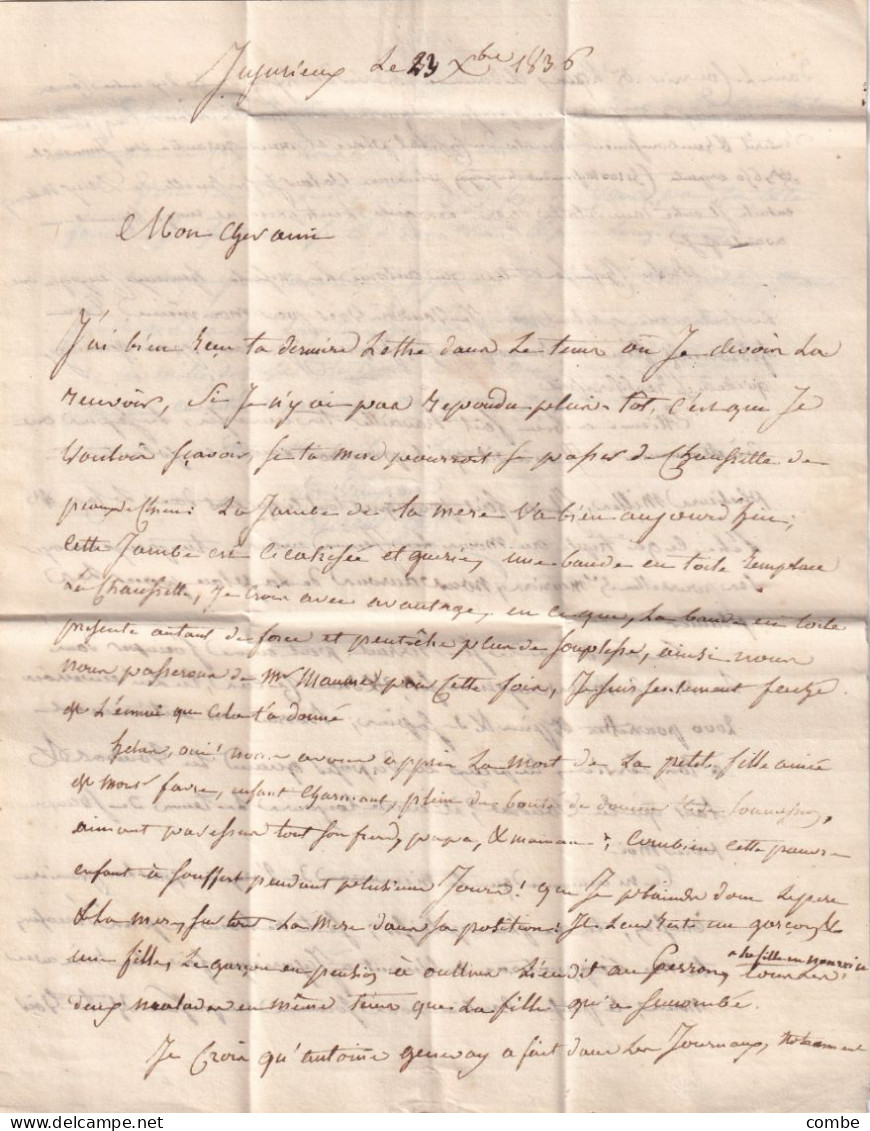 Jujurieux Le 23 Xbre 1836
Mon cher ami
J'ai bien Reçu ta derniere Lettre dans Le tems où Je devois La
recevoir, Si Je n'y ai pas repondu plus-tôt, c'est que Je
Voulois sçavoir, si ta mere pourroit se passer de Chaussette de
peaux de Chien: La Jambe de ta mere va bien aujourd'hui;
cette Jambe est cicatrisée et guerie, une bande en toile remplace
la Chaussette, Je crois avec avantage, en ce que, La bande en toile
presente autant de force et peutêtre plus de souplesse, ainsi nous
nous passerons de Mr pour cette fois, Je suis seulement
de L'ennui que cela t'a donné
helas, oui! nous avons appris La mort de La petite fille ainée
de Mons. favre, enfant Charmant, plein de bonté de douceur &
aimant Caresser tout son frere, papa, & maman; Combien cette pauvre
enfant à souffert pendant plusieurs Jours! que Je plains donc Le pere
& La mere, surtout La mere dans sa position: Il Leur reste un garçon, &
une fille, Le garçon en pension à oullins Lieudit au Perron, & La fille en nourrice
tous Les
deux malades en même tems que La fille qu'a succombé.
Je Crois qu'antoine genevay a fait dans Les Journaux, notamment
combe